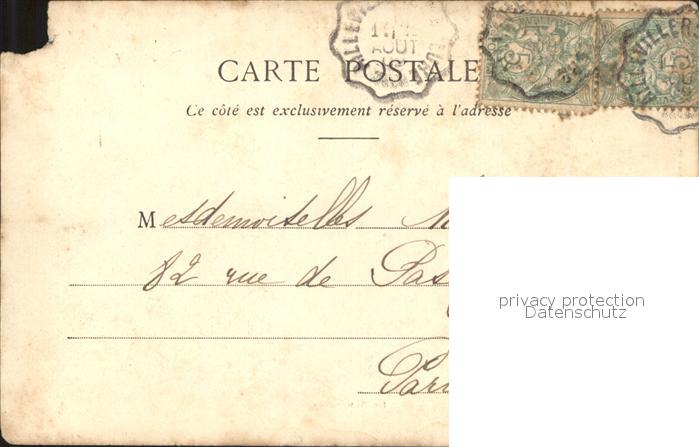 CARTE POSTALE
Ce côté est exclusivement réservé à l'adresse
Mesdemoiselles
82 rue de
privacy protection
Datenschutz